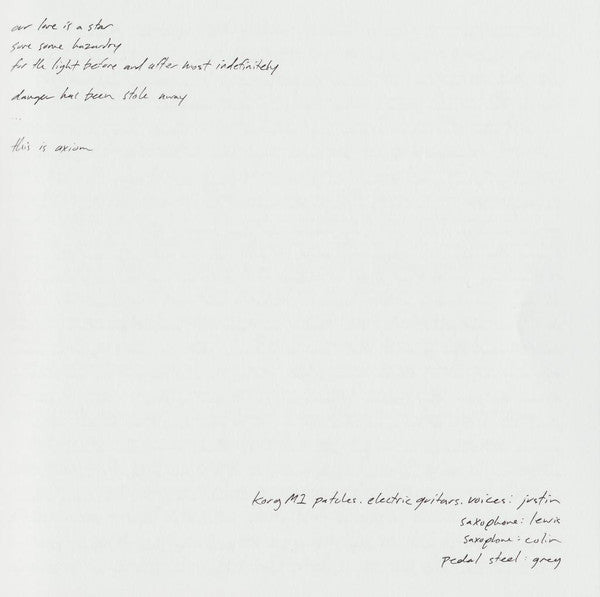 our love is a star
sure some hazardry
for the light before and after most indefinitely
danger has been stole away
...
this is axiom
Korg M1 patches. electric guitars. voices: justin
saxophone: lewis
saxophone: colin
pedal steel: greg